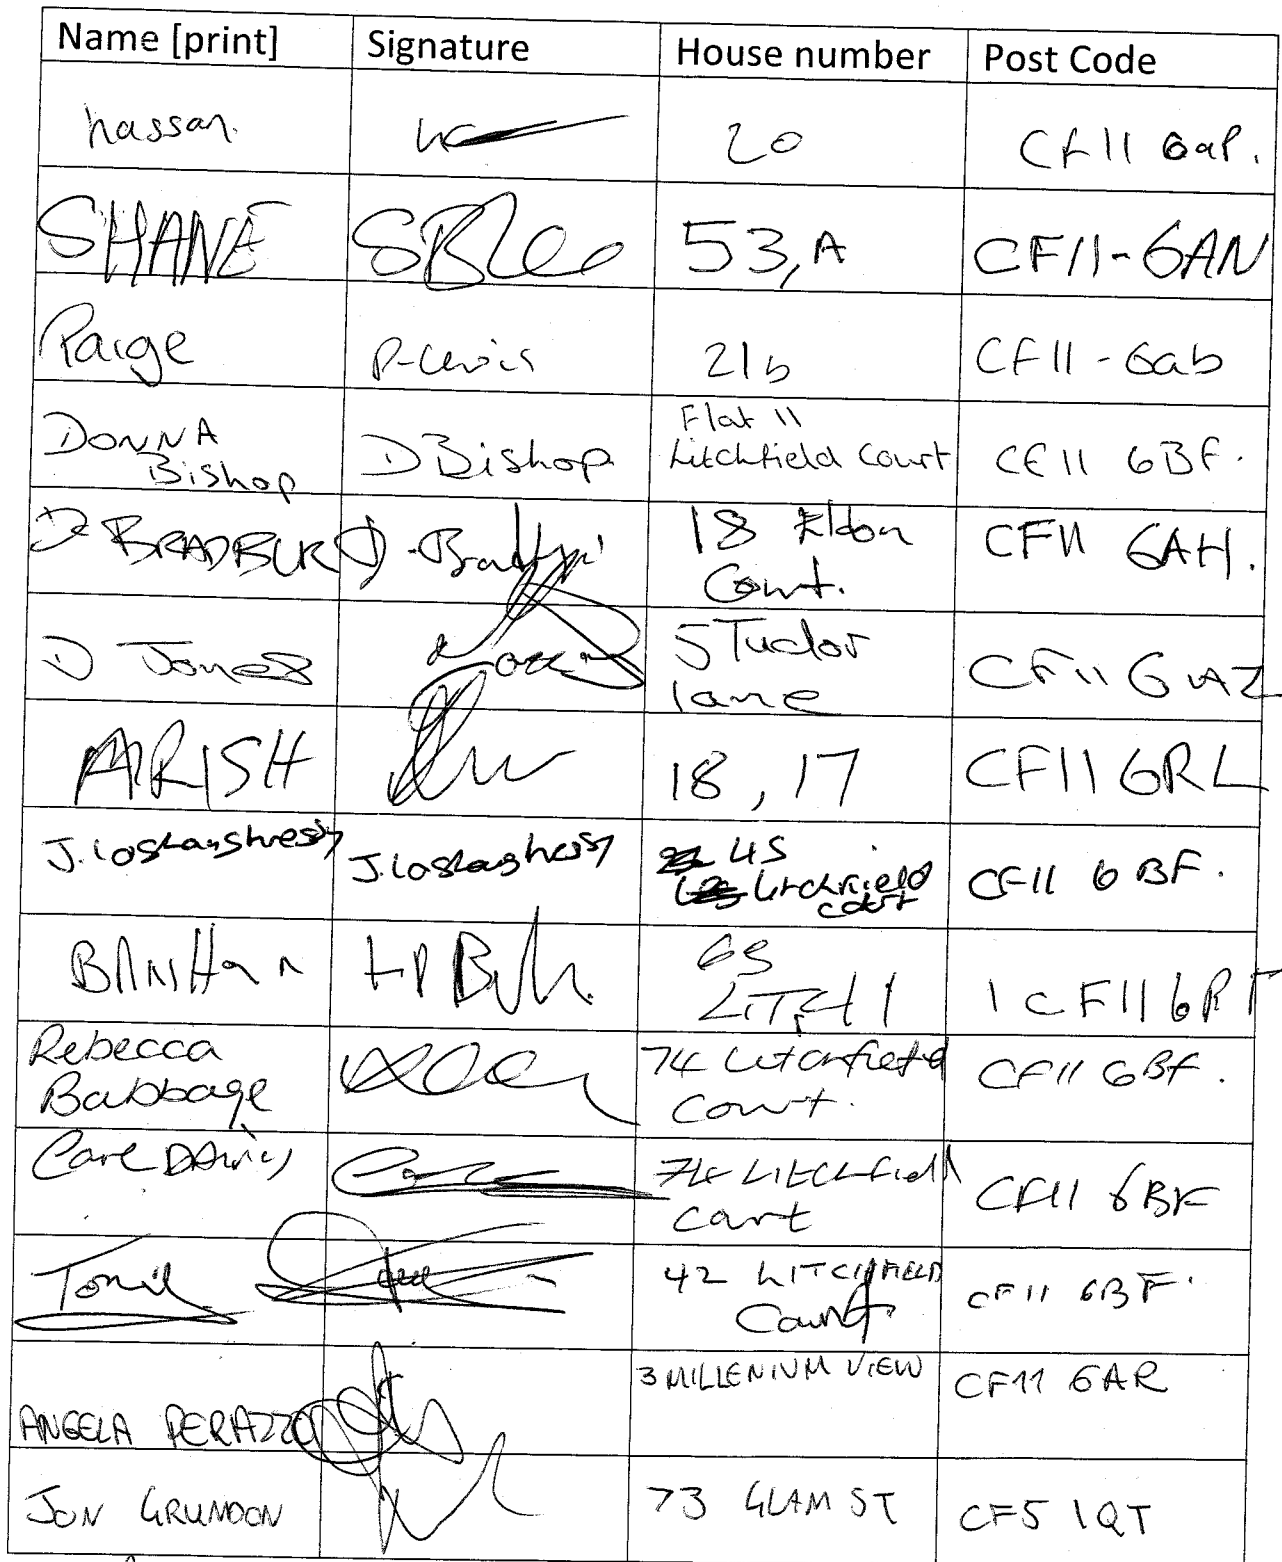 Name [print] Signature House number Post Code
hassan. 20 CF11 6aP.
SHANE 53,A CF11-6AN
Paige P-Lewis 21b CF11-6ab
DONNA
Bishop D Bishop Flat 11
Litchfield Court CF11 6BF.
D BRADBURY 18 Eldon
Court. CF11 6AH.
D Jones 5 Tudor
lane CF11 6AZ
ARISH 18, 17 CF11 6RL
J. J. 45
Litchfield
court CF11 6BF.
65
CF11 6
Rebecca
Babbage 74 Litchfield
Court. CF11 6BF.
Carl DAvies 74 Litchfield
Court CF11 6BF
42 LITCHFIELD
Court CF11 6BF.
ANGELA PERAZZO 3 MILLENIUM VIEW CF11 6AR
JON GRUNDON 73 GLAM ST CF5 1QT